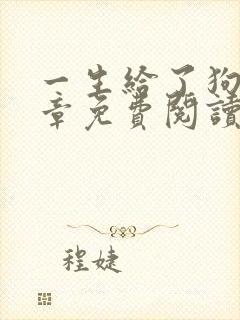 一生給了狗
章免費閱讀
程婕